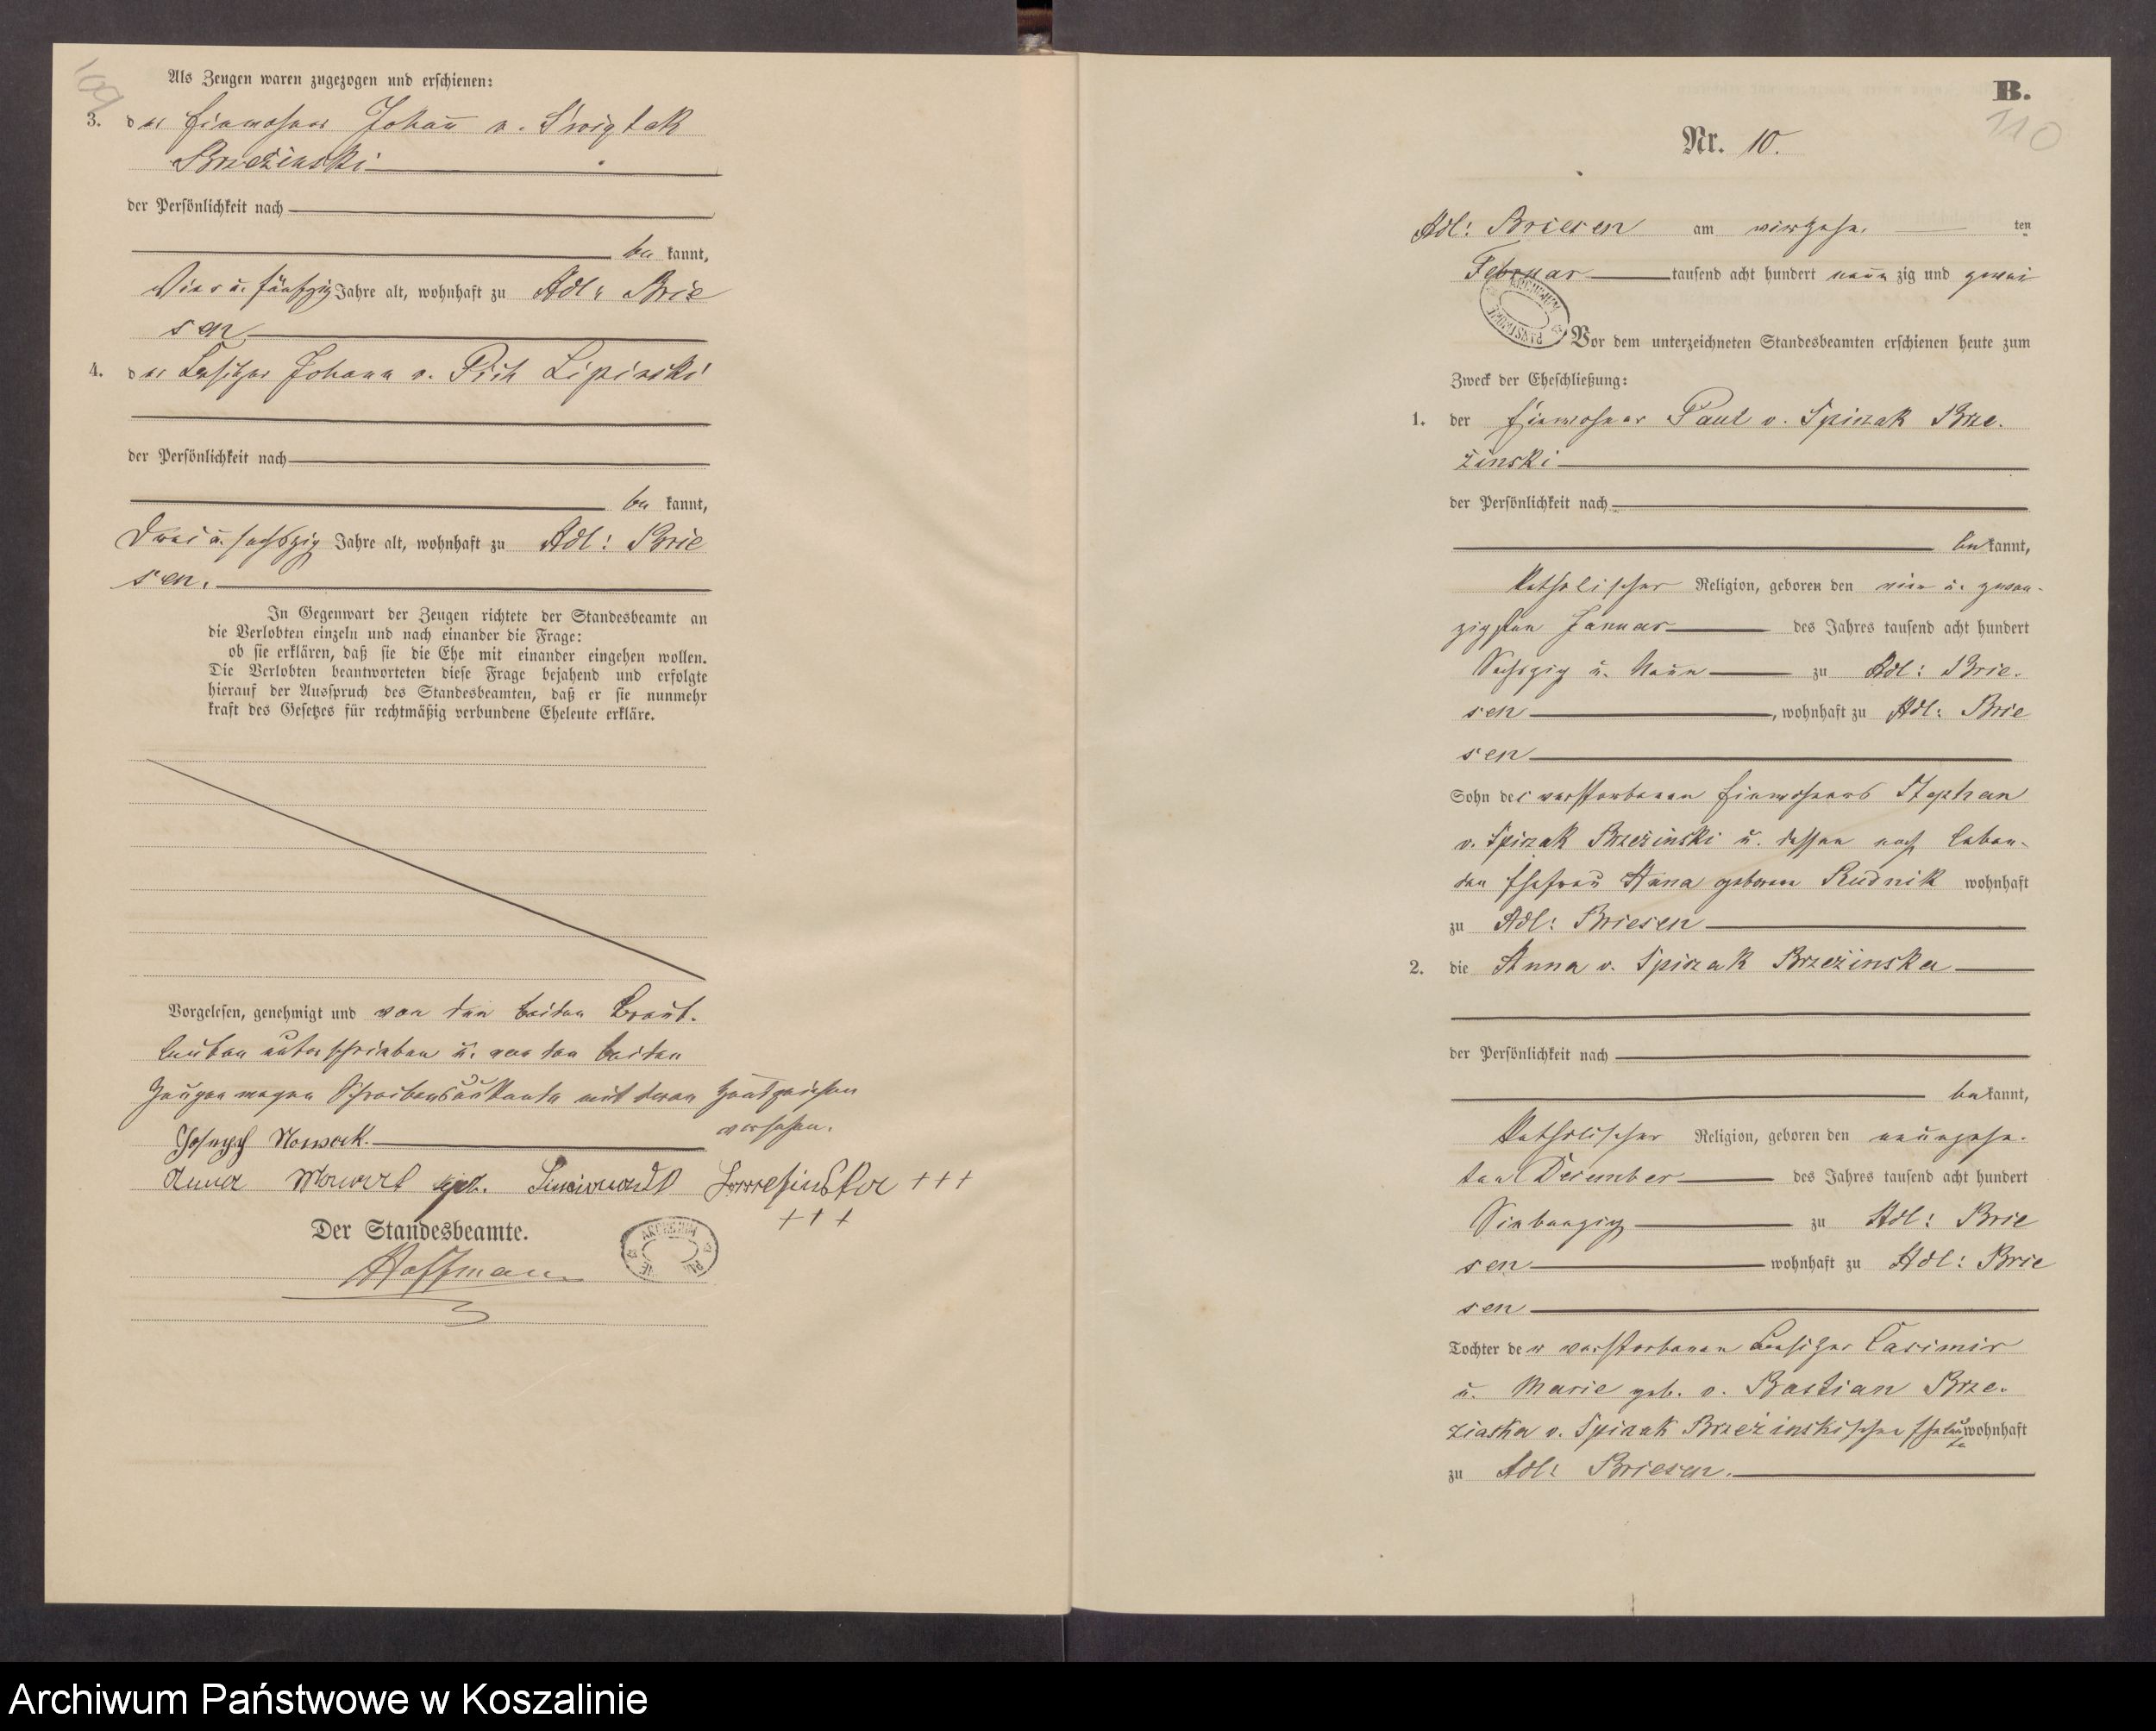 109
Als Zeugen waren zugezogen und erschienen:
3. der Einwohner Johann v. Swigtek
Brzezinski
der Persönlichkeit nach
be kannt,
Vier u. fünfzig Jahre alt, wohnhaft zu Adl: Brie
sen
4. der Besitzer Johann v. Pich Lipinski
der Persönlichkeit nach
be kannt,
Drei u. sechszig Jahre alt, wohnhaft zu Adl: Brie
sen.
In Gegenwart der Zeugen richtete der Standesbeamte an
die Verlobten einzeln und nach einander die Frage:
ob sie erklären, daß sie die Ehe mit einander eingehen wollen.
Die Verlobten beantworteten diese Frage bejahend und erfolgte
hierauf der Ausspruch des Standesbeamten, daß er sie nunmehr
kraft des Gesetzes für rechtmäßig verbundene Eheleute erkläre.
Vorgelesen, genehmigt und von den beiden Braut-
leuten unterschrieben u. von den beiden
Zeugen wegen Schreibensunkunde mit deren Handzeichen
versehen.
Joseph Nowack.
Anna geb. +++
+++
Der Standesbeamte.
Hoffmann
ARCHIWUM
B.
110
Nr. 10.
Adl: Briesen am vierzehn ten
Februar tausend acht hundert neun zig und zwei
ARCHIWUM PAŃSTWOWE
Vor dem unterzeichneten Standesbeamten erschienen heute zum
Zweck der Eheschließung:
1. der Einwohner Paul v. Spiczak Brze-
zinski
der Persönlichkeit nach
be kannt,
katholischer Religion, geboren den vier u. zwan-
zigsten Januar des Jahres tausend acht hundert
Sechszig u. Neun zu Adl: Brie-
sen, wohnhaft zu Adl: Brie
sen
Sohn des verstorbenen Einwohners Stephan
v. Spiczak Brzezinski u. dessen noch leben-
den Ehefrau Anna geborene Rudnik wohnhaft
zu Adl: Briesen
2. die Anna v. Spiczak Brzezinska
der Persönlichkeit nach
be kannt,
Katholischer Religion, geboren den neunzehn-
ten December des Jahres tausend acht hundert
Siebenzig zu Adl: Brie
sen wohnhaft zu Adl: Brie
sen
Tochter der verstorbenen Besitzer Casimir
u. Marie geb. v. Bastian Brze-
zinska v. Spiczak Brzezinskischen Eheleute wohnhaft
zu Adl: Briesen.
Archiwum Państwowe w Koszalinie